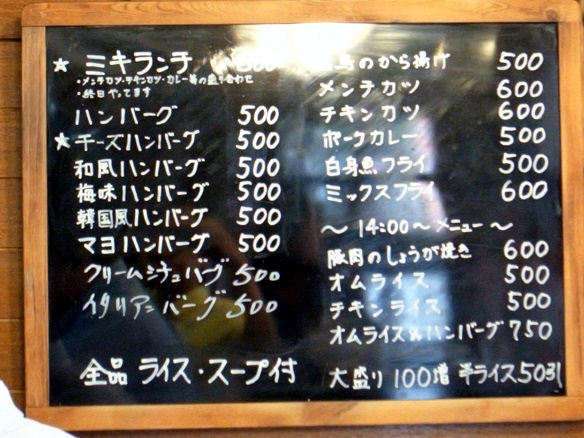 ★ ミキランチ 500
・メンチカツ・チキンカツ・カレー等の盛り合わせ
・終日やってます
ハンバーグ 500
★ チーズハンバーグ 500
和風ハンバーグ 500
梅味ハンバーグ 500
韓国風ハンバーグ 500
マヨハンバーグ 500
クリームシチュバグ 500
イタリアンバーグ 500
全品 ライス・スープ付
鳥のから揚げ 500
メンチカツ 600
チキンカツ 600
ポークカレー 500
白身魚フライ 500
ミックスフライ 600
～ 14:00～メニュー ～
豚肉のしょうが焼き 600
オムライス 500
チキンライス 500
オムライス&ハンバーグ 750
大盛り 100増 半ライス 50引